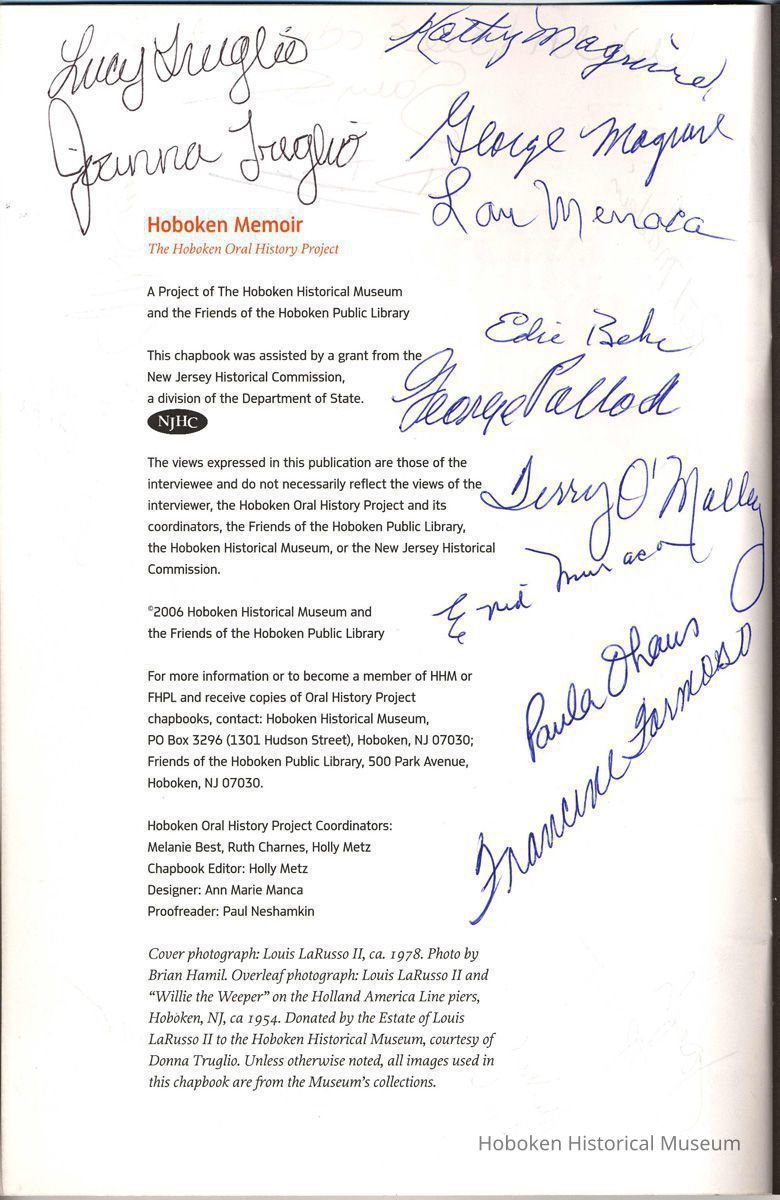 Lucy Truglio
Joanna Truglio
Kathy Maguire
George Maguire
Lou
Hoboken Memoir
The Hoboken Oral History Project
A Project of The Hoboken Historical Museum
and the Friends of the Hoboken Public Library
Edie
This chapbook was assisted by a grant from the
New Jersey Historical Commission,
a division of the Department of State.
George Pallock
NJHC
The views expressed in this publication are those of the
interviewee and do not necessarily reflect the views of the
interviewer, the Hoboken Oral History Project and its
coordinators, the Friends of the Hoboken Public Library,
the Hoboken Historical Museum, or the New Jersey Historical
Commission.
Terry O'Malley
©2006 Hoboken Historical Museum and
the Friends of the Hoboken Public Library
Enid
For more information or to become a member of HHM or
FHPL and receive copies of Oral History Project
chapbooks, contact: Hoboken Historical Museum,
PO Box 3296 (1301 Hudson Street), Hoboken, NJ 07030;
Friends of the Hoboken Public Library, 500 Park Avenue,
Hoboken, NJ 07030.
Paula Ohaus
Francine Formoso
Hoboken Oral History Project Coordinators:
Melanie Best, Ruth Charnes, Holly Metz
Chapbook Editor: Holly Metz
Designer: Ann Marie Manca
Proofreader: Paul Neshamkin
Cover photograph: Louis LaRusso II, ca. 1978. Photo by
Brian Hamil. Overleaf photograph: Louis LaRusso II and
“Willie the Weeper” on the Holland America Line piers,
Hoboken, NJ, ca 1954. Donated by the Estate of Louis
LaRusso II to the Hoboken Historical Museum, courtesy of
Donna Truglio. Unless otherwise noted, all images used in
this chapbook are from the Museum’s collections.
Hoboken Historical Museum